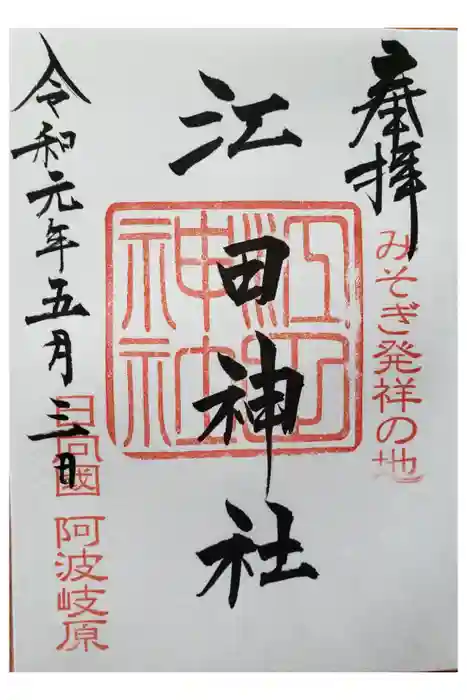 奉拝
みそぎ発祥の地
江田神社
江田神社
令和元年五月三日
日向國 阿波岐原